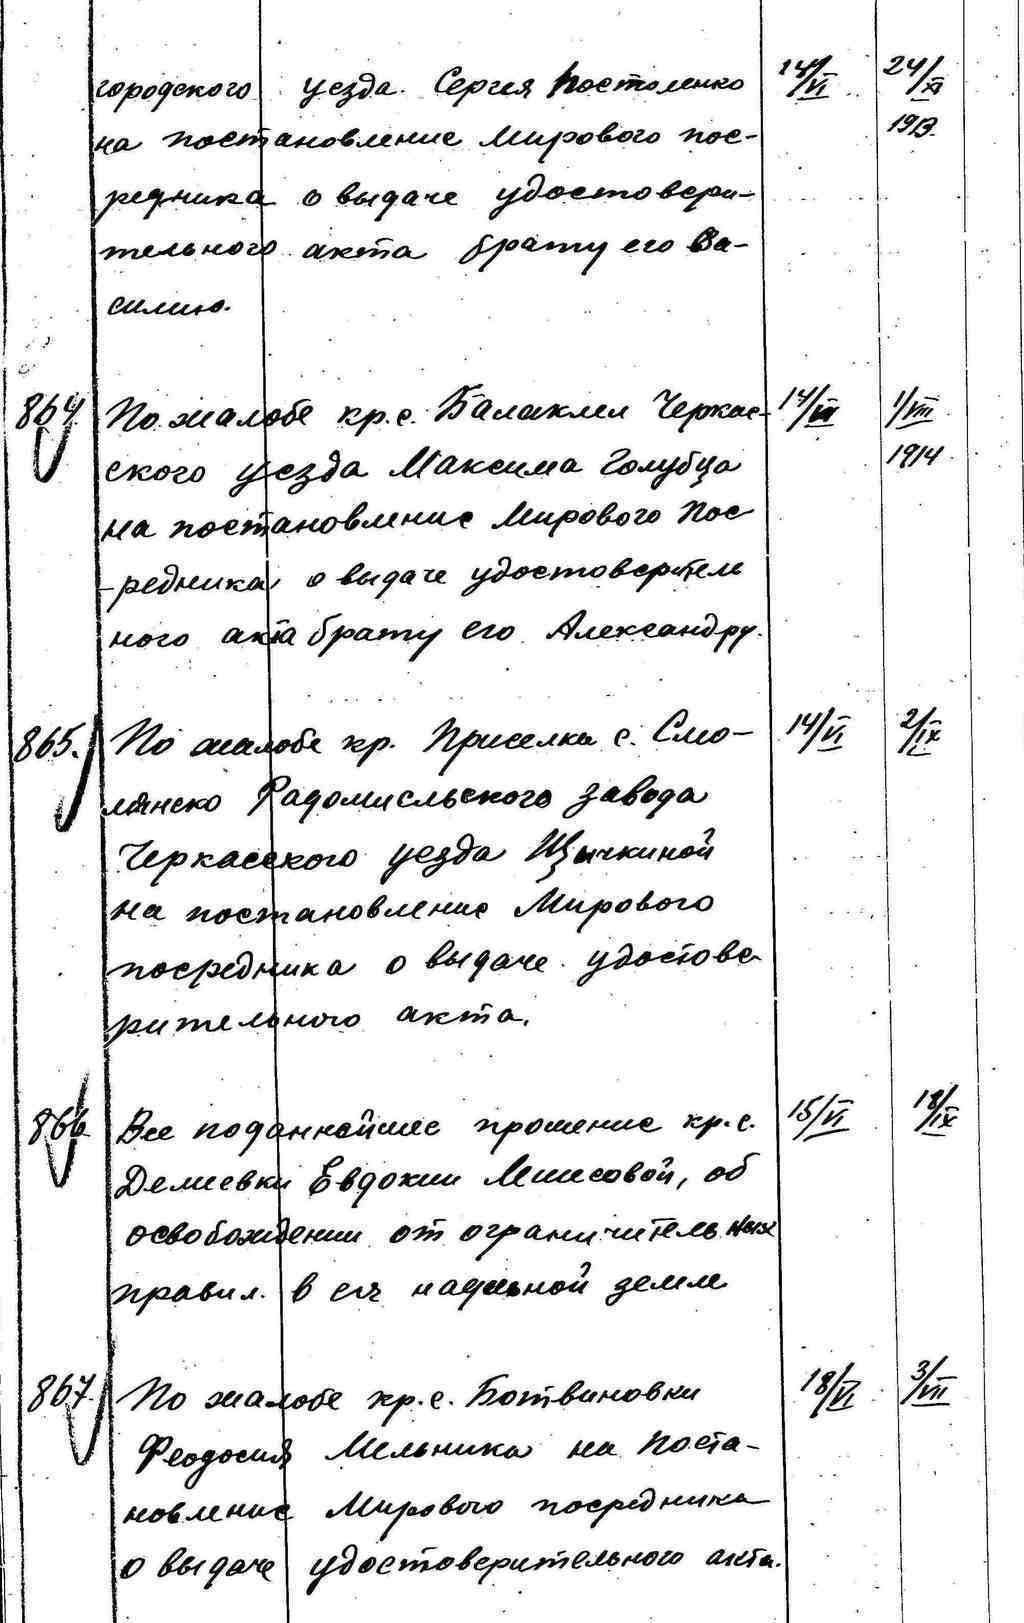 городского уезда Сергея Постоленко 14/VI 24/XI
на постановление Мирового пос- 1913.
редника о выдаче удостовери-
тельного акта брату его Ва-
силию.
864. По жалобе кр. с. Балаклеи Черкас- 14/VI 1/VIII
ского уезда Максима Голубца 1914
на постановление Мирового Пос
-редника о выдаче удостоверитель
ного акта брату его Александру.
865. По жалобе кр. Приселка с. Смо- 14/VI 2/IX
лянско Радомисльского завода
Черкасского уезда Щычкиной
на постановление Мирового
посредника о выдаче удостове-
рительного акта.
866 Все поданнейшее прошение кр. с. 15/VI 18/IX
Демиевки Евдохии Моисовой, об
освобождении от ограничительных
правил в ея надельной земле
867. По жалобе кр. с. Ботвиновки 18/VI 3/VII
Феодосия Мельника на Поста-
новление Мирового посредника
о выдаче удостоверительного акта.